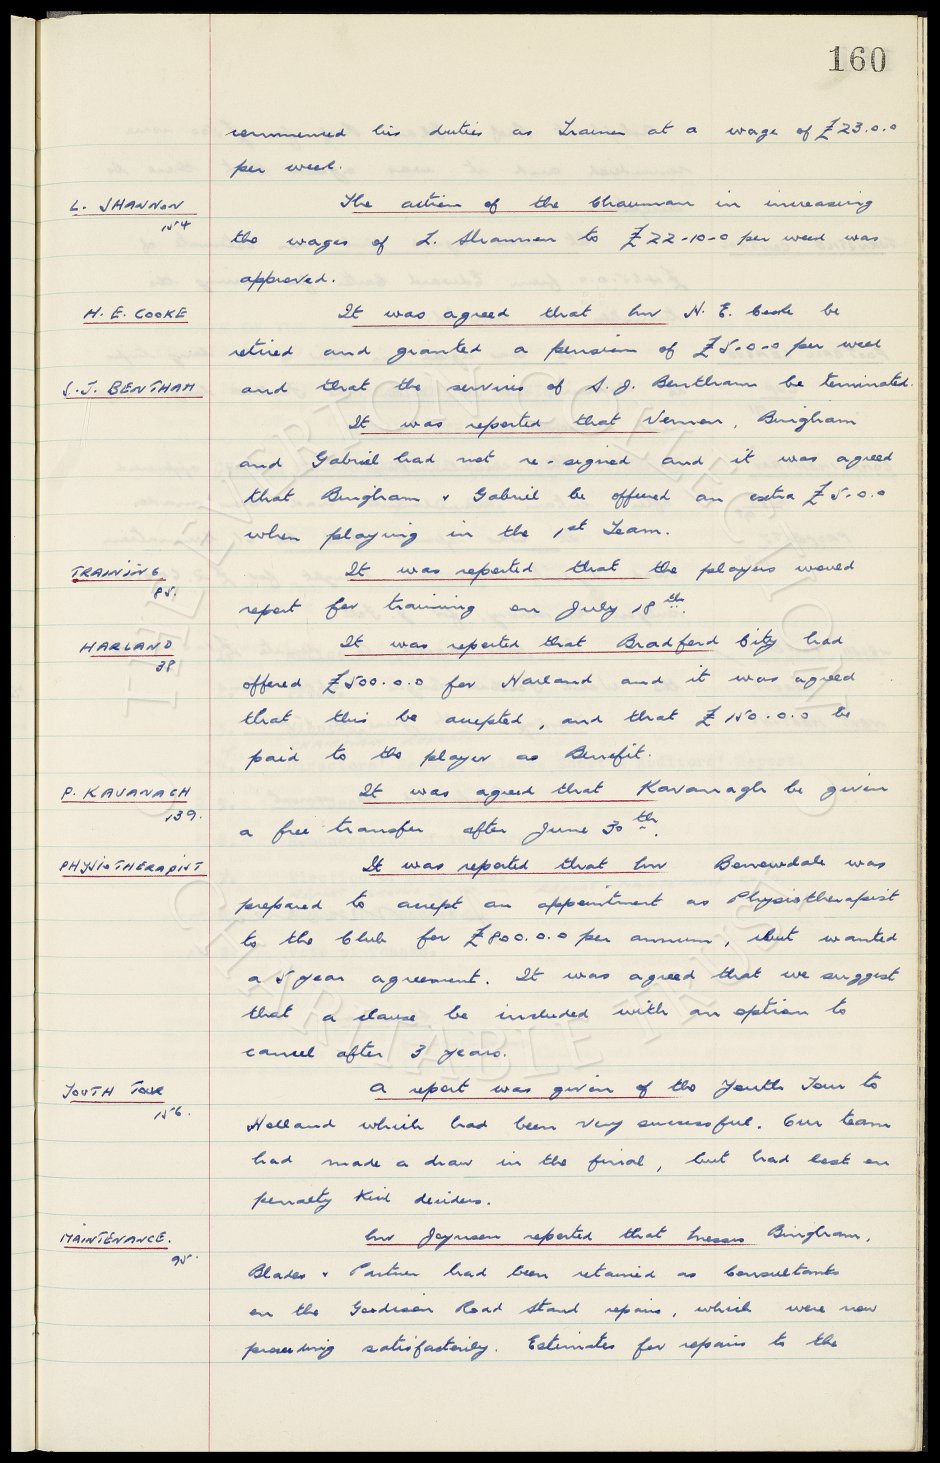 160
recommenced his duties as Trainer at a wage of £23.0.0
per week.
L. SHANNON
154
The action of the Chairman in increasing
the wages of L. Shannon to £22-10-0 per week was
approved.
H. E. COOKE
It was agreed that Mr H. E. Cooke be
retired and granted a pension of £5.0.0 per week
S.J. BENTHAM
and that the services of S. J. Bentham be terminated.
It was reported that Vernon, Bingham
and Gabriel had not re-signed and it was agreed
that Bingham & Gabriel be offered an extra £5.0.0
when playing in the 1st Team.
TRAINING
85.
It was reported that the players would
report for training on July 18th.
HARLAND
38
It was reported that Bradford City had
offered £500.0.0 for Harland and it was agreed
that this be accepted, and that £150.0.0 be
paid to the player as Benefit.
P. KAVANAGH
139.
It was agreed that Kavanagh be given
a free transfer after June 30th.
PHYSIOTHERAPIST
It was reported that Mr Borrowdale was
prepared to accept an appointment as Physiotherapist
to the Club for £800.0.0 per annum, but wanted
a 5 year agreement. It was agreed that we suggest
that a clause be included with an option to
cancel after 3 years.
YOUTH TOUR
156.
A report was given of the Youth Tour to
Holland which had been very successful. Our team
had made a draw in the final, but had lost on
penalty kick deciders.
MAINTENANCE.
95.
Mr Joynson reported that Messrs Bingham,
Blades & Partner had been retained as Consultants
on the Goodison Road Stand repairs, which were now
proceeding satisfactorily. Estimates for repairs to the
THE EVERTON COLLECTION
CHARITABLE TRUST